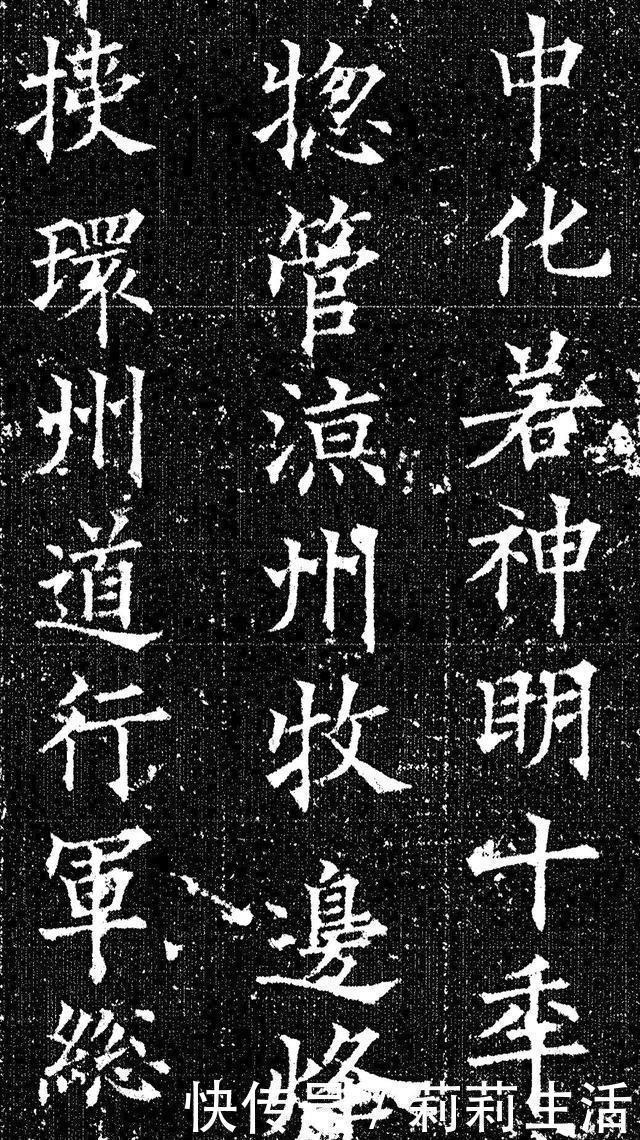 中化若神明十年
惣管凉州牧邊烽
挾環州道行軍総
快传号 / 莉莉生活